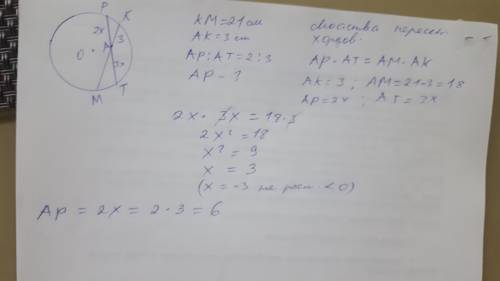 P
K
2x
3
O
A
3x
M
T
KM = 21 см
AK = 3 см
AP : AT = 2 : 3
AP - ?
пересеч.
хорд
AP · AT = AM · AK
AK = 3 ; AM = 21-3 = 18
AP = 2x ; AT = 3x
2x · 3x = 18 · 3
2x² = 18
x² = 9
x = 3
(x = -3 не < 0)
AP = 2x = 2 · 3 = 6